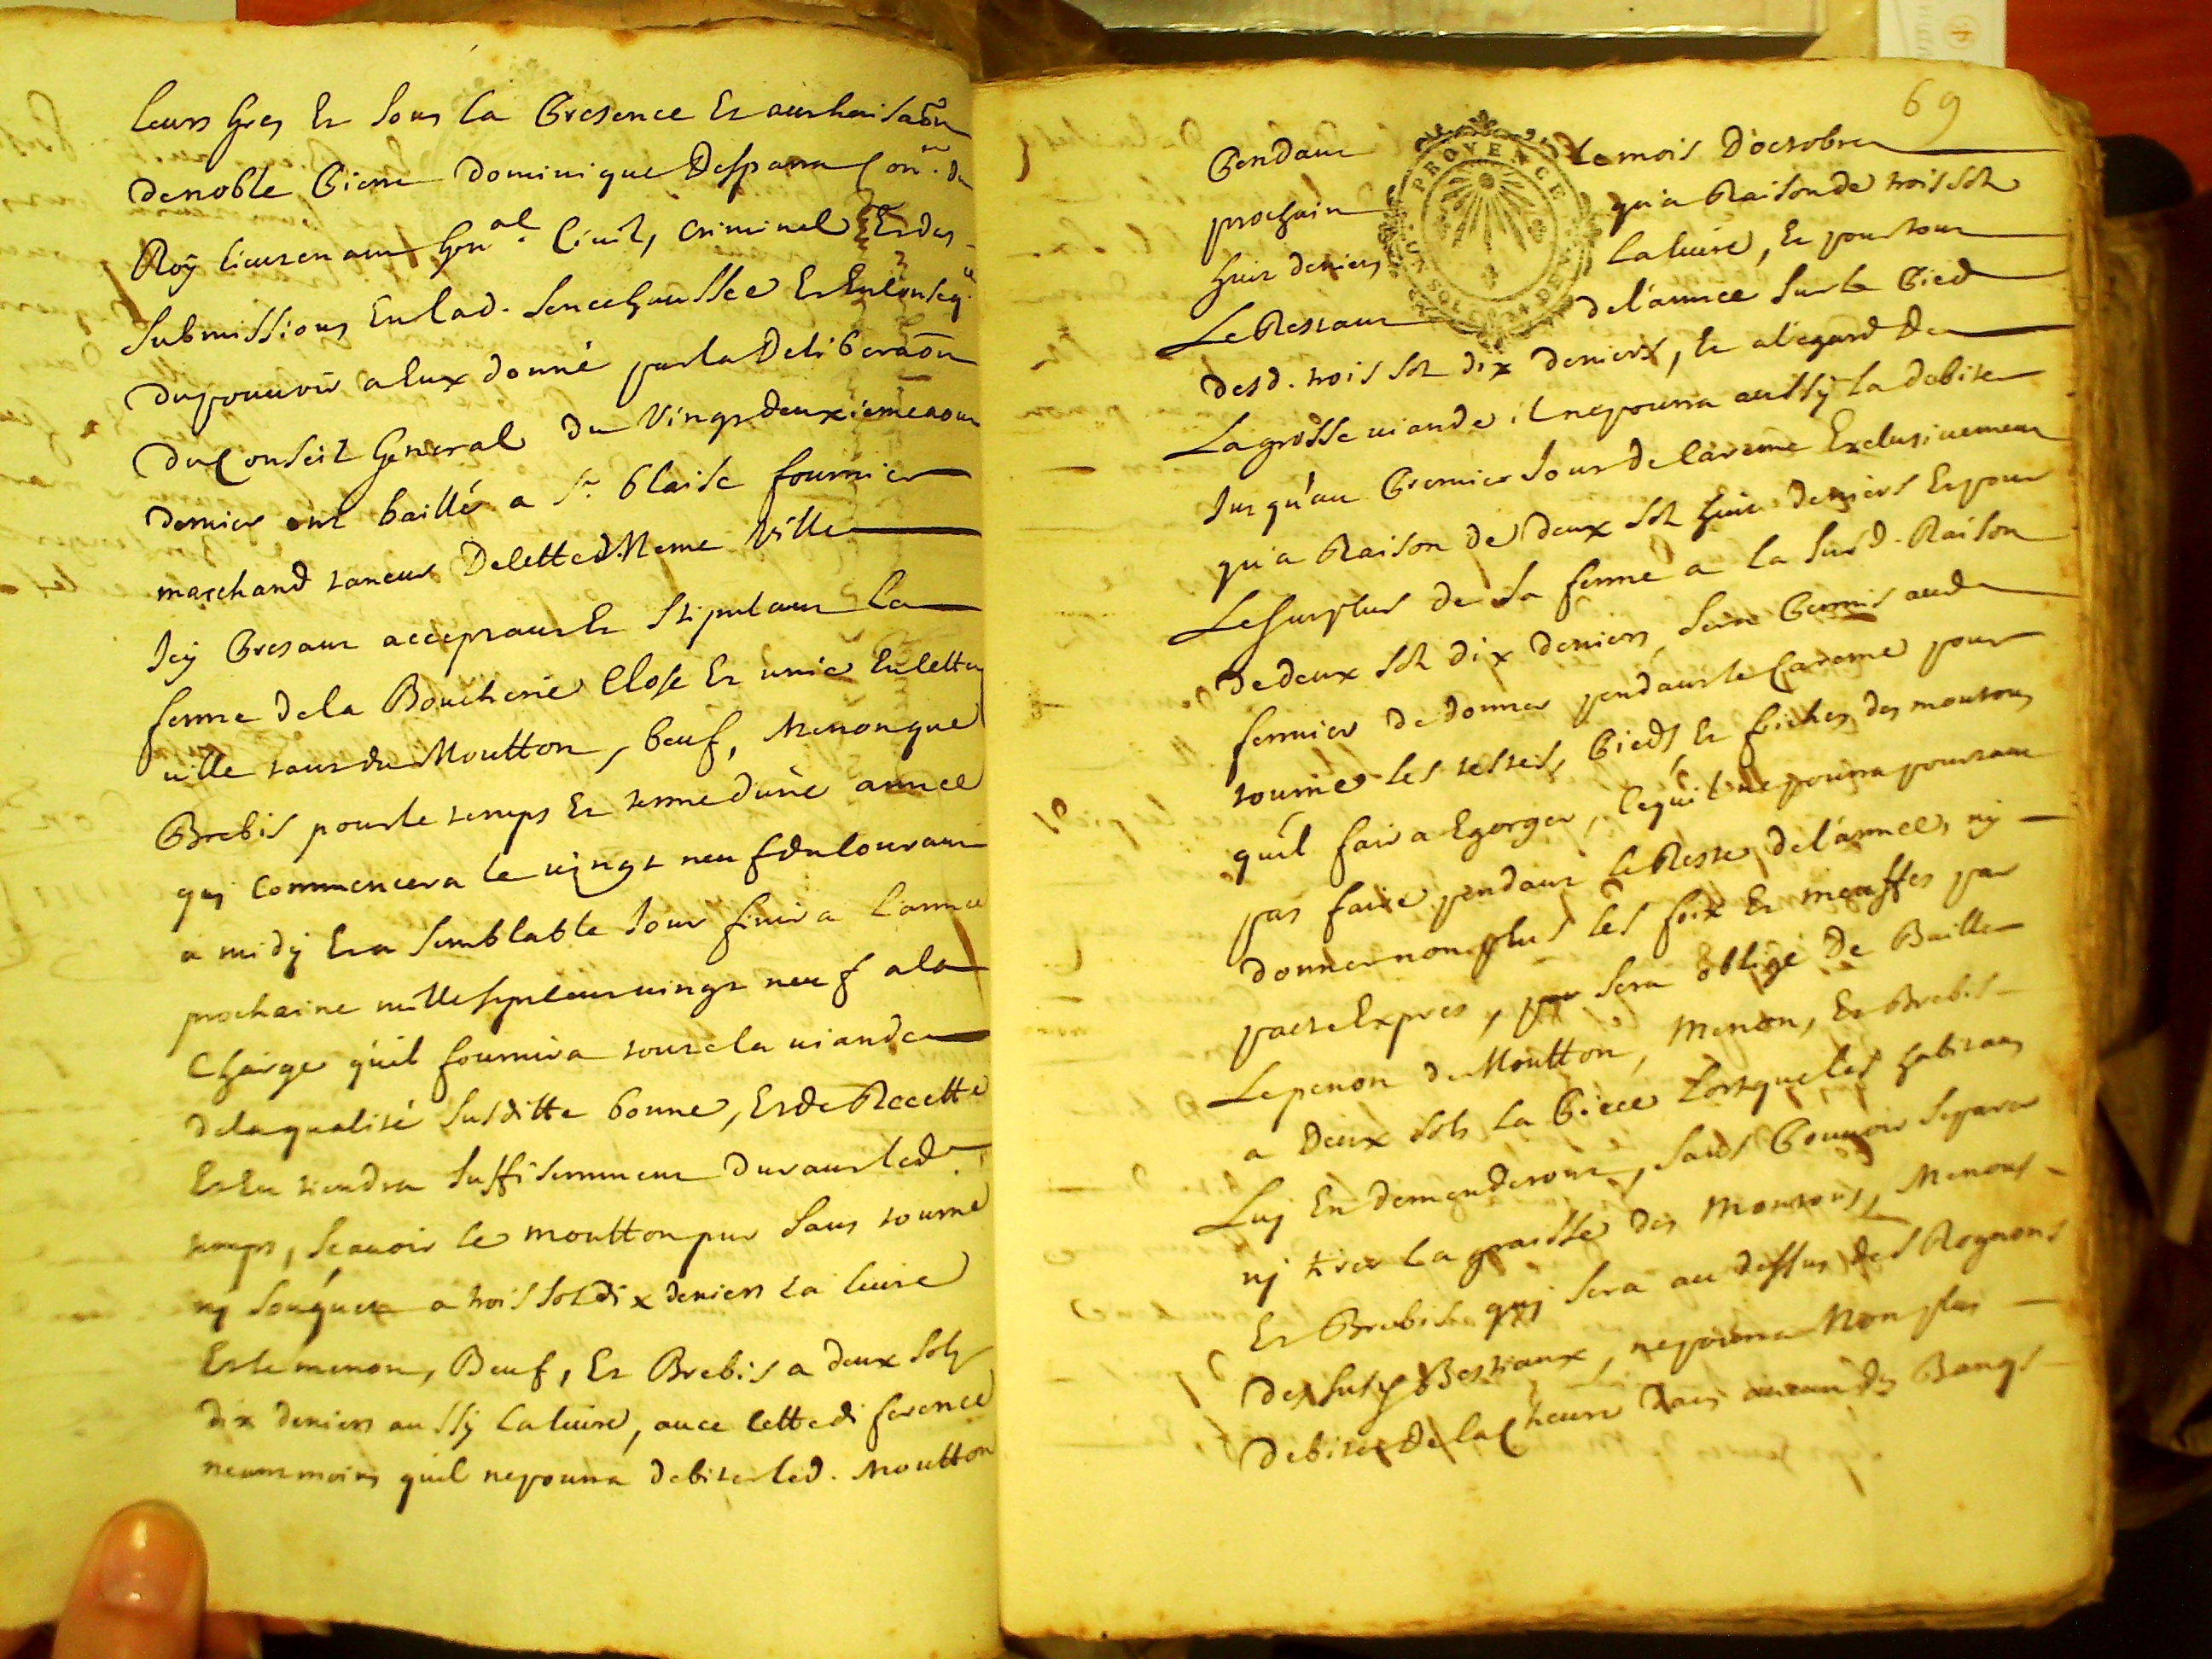 leurs grez et sous la presence et authorisaôn
de noble Pierre Dominique Despana Con.er du
Roÿ lieutenant gen.al Civil, criminel et des
submissions en lad. senechaussée et en conseq.ce
du pouvoir a eux donné par la deliberaôn
du Conseil general du vingt deuxieme aout
dernier ont baillé a S.r blaise fournier
marchand taneur de cette d. meme ville
icy present acceptant et stipulant la
ferme de la Boucherie close et unie en cette
ville tant du Moutton, beuf, Menon que
Brebis pour le temps et terme d'une année
quj commencera le vingt neuf du courant
a midÿ et a semblable jour finira l'année
prochaine mille sept cent vingt neuf a la
charge qu'il fournira toute la viande
de la qualité susditte bonne, et de Recette
et en tiendra suffisemment durant led.
temps, scavoir le moutton pur sans tourné
nÿ souquet a trois sol dix deniers la livre
et le menon, Beuf, et Brebis a deux sols
dix deniers aussÿ la livre, avec cette diference
neantmoins qu'il ne pourra debiter led. Moutton
69
PROVENCE
UN SOL
DEN
Pendant le mois D'octobre
prochain qu'a Raison de trois sol
huit deniers la livre, et pour tout
Le Restant de l'année sur le Pied
desd. trois sol dix deniers, et a l'egard de
La grosse viande il ne pourra aussÿ la debiter
jusqu'au Premier jour de Careme Exclusivement
qu'a Raison de deux sol huit deniers et pour
Le surplus de sa ferme a la susd. Raison
de deux sol dix deniers, sera Permis aud.
fermier de donner pendant le Careme pour
tourne les testes, Pieds et friches des moutons
qu'il faira Egorger, ce qu'il ne pourra pourtant
pas faire pendant le Reste de l'année, nÿ
donner non plus les foix et meuffes par
pacte Expres, sera obligé de Bailler
Le penon de Moutton, Menon, et Brebis
a Deux sols la Piece lorsque les habitans
Luj En demanderont, sans Pouvoir separer
nj tirer la graisse des Moutons, Menons
Et Brebis quj sera au dessus des Rognons
des susd. Bestiaux, ne pourra Non plus
Debiter de la Chevre dans aucun des Bangs